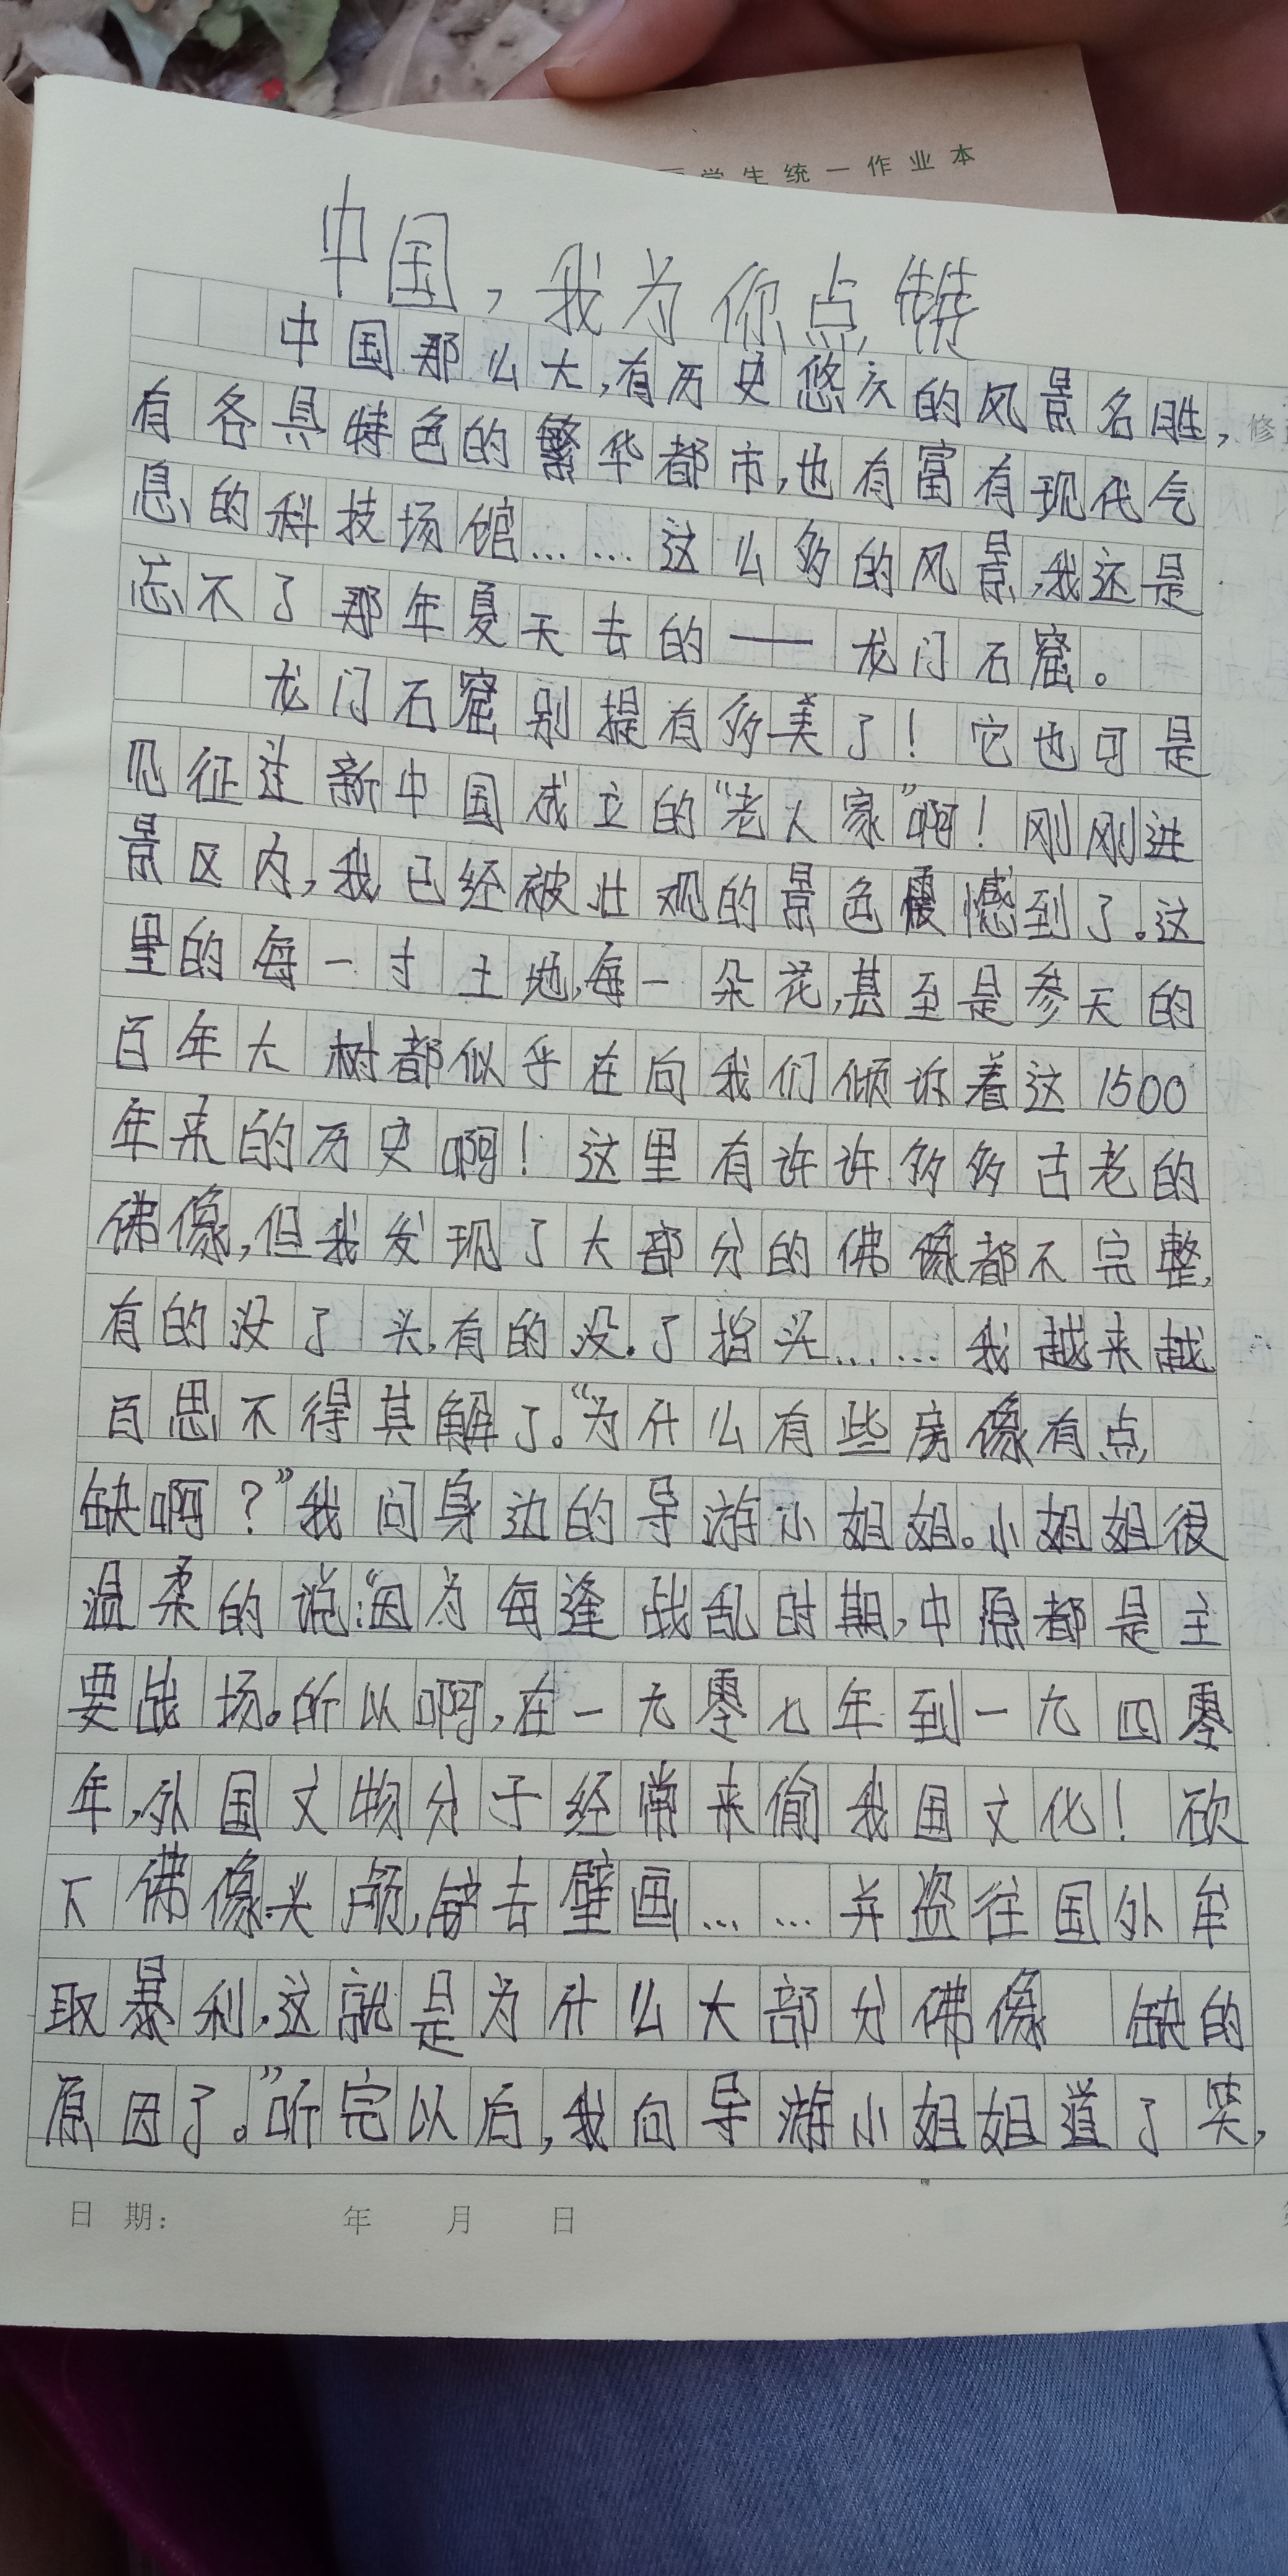 学生统一作业本
中国，我为你点赞
中国那么大，有历史悠久的风景名胜，
修
有各具特色的繁华都市，也有富有现代气
息的科技场馆……这么多的风景，我还是
忘不了那年夏天去的——龙门石窟。
龙门石窟别提有多美了！它也可是
见征连新中国成立的“老人家”啊！刚刚进
景区内，我已经被壮观的景色震憾到了。这
里的每一寸土地，每一朵花，甚至是参天的
百年大树都似乎在向我们倾诉着这1500
年来的历史啊！这里有许许多多古老的
佛像，但我发现了大部分的佛像都不完整，
有的没了头，有的没了指头……我越来越
百思不得其解了。“为什么有些房像有点
缺啊？”我问身边的导游小姐姐。小姐姐很
温柔的说：“因为每逢战乱时期，中原都是主
要战场。所以啊，在一九零七年到一九四零
年，外国文物分子经常来偷我国文化！砍
下佛像头颅，铲去壁画……并盗往国外牟
取暴利，这就是为什么大部分佛像 缺的
原因了。”听完以后，我向导游小姐姐道了笑，
日期： 年 月 日